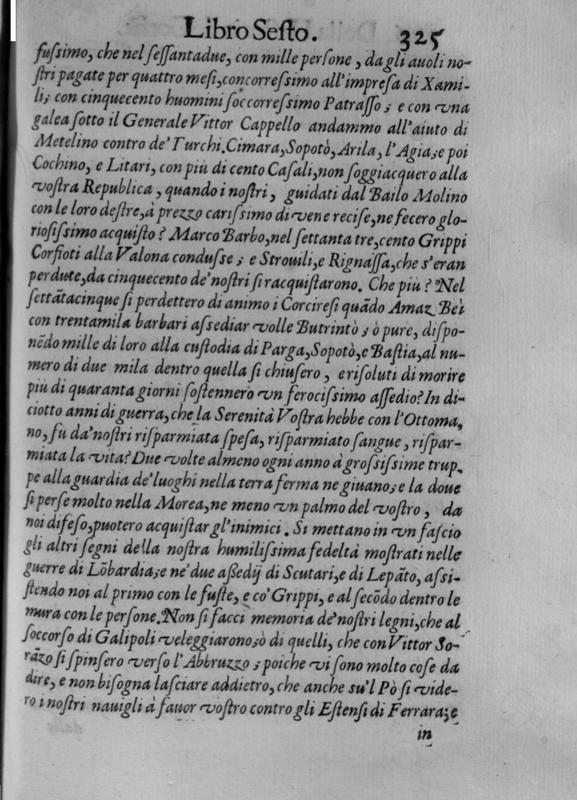 Libro Sesto. 325
fussimo, che nel sessantadue, con mille persone, da gli auoli no-
stri pagate per quattro mesi, concorressimo all'impresa di Xami-
li; con cinquecento huomini soccorressimo Patrasso; e con vna
galea sotto il Generale Vittor Cappello andammo all'aiuto di
Metelino contro de' Turchi. Cimara, Sopotò, Arila, l'Agia; e poi
Cochino, e Litari, con più di cento Casali, non soggiacquero alla
vostra Republica, quando i nostri, guidati dal Bailo Molino
con le loro destre, à prezzo carissimo di vene recise, ne fecero glo-
riosissimo acquisto? Marco Barbo, nel settanta tre, cento Grippi
Corfioti alla Valona condusse; e Strouili, e Rignassa, che s'eran
perdute, da cinquecento de' nostri si racquistarono. Che più? Nel
settãtacinque si perdettero di animo i Corciresi quãdo Amaz Bei
con trentamila barbari assediar volle Butrintò; ò pure, dispo-
nẽdo mille di loro alla custodia di Parga, Sopotò, e Bastia, al nu-
mero di due mila dentro quella si chiusero, e risoluti di morire
più di quaranta giorni sostennero vn ferocissimo assedio? In di-
ciotto anni di guerra, che la Serenità Vostra hebbe con l'Ottoma,
no, fù da' nostri risparmiata spesa, risparmiato sangue, rispar-
miata la vita? Due volte almeno ogni anno à grossissime trup,
pe alla guardia de' luoghi nella terra ferma ne giuano; e la doue
si perse molto nella Morea, ne meno vn palmo del vostro, da
noi difeso, puotero acquistar gl'inimici. Si mettano in vn fascio
gli altri segni della nostra humilissima fedeltà mostrati nelle
guerre di Lõbardia; e ne' due assedij di Scutari, e di Lepãto, assi-
stendo noi al primo con le fuste, e co' Grippi, e al secõdo dentro le
mura con le persone. Non si facci memoria de' nostri legni, che al
soccorso di Galipoli veleggiarono; ò di quelli, che con Vittor So-
rãzo si spinsero verso l'Abbruzzo; poiche vi sono molto cose da
dire, e non bisogna lasciare addietro, che anche su'l Pò si vide-
ro i nostri nauigli à fauor vostro contro gli Estensi di Ferrara; e
in